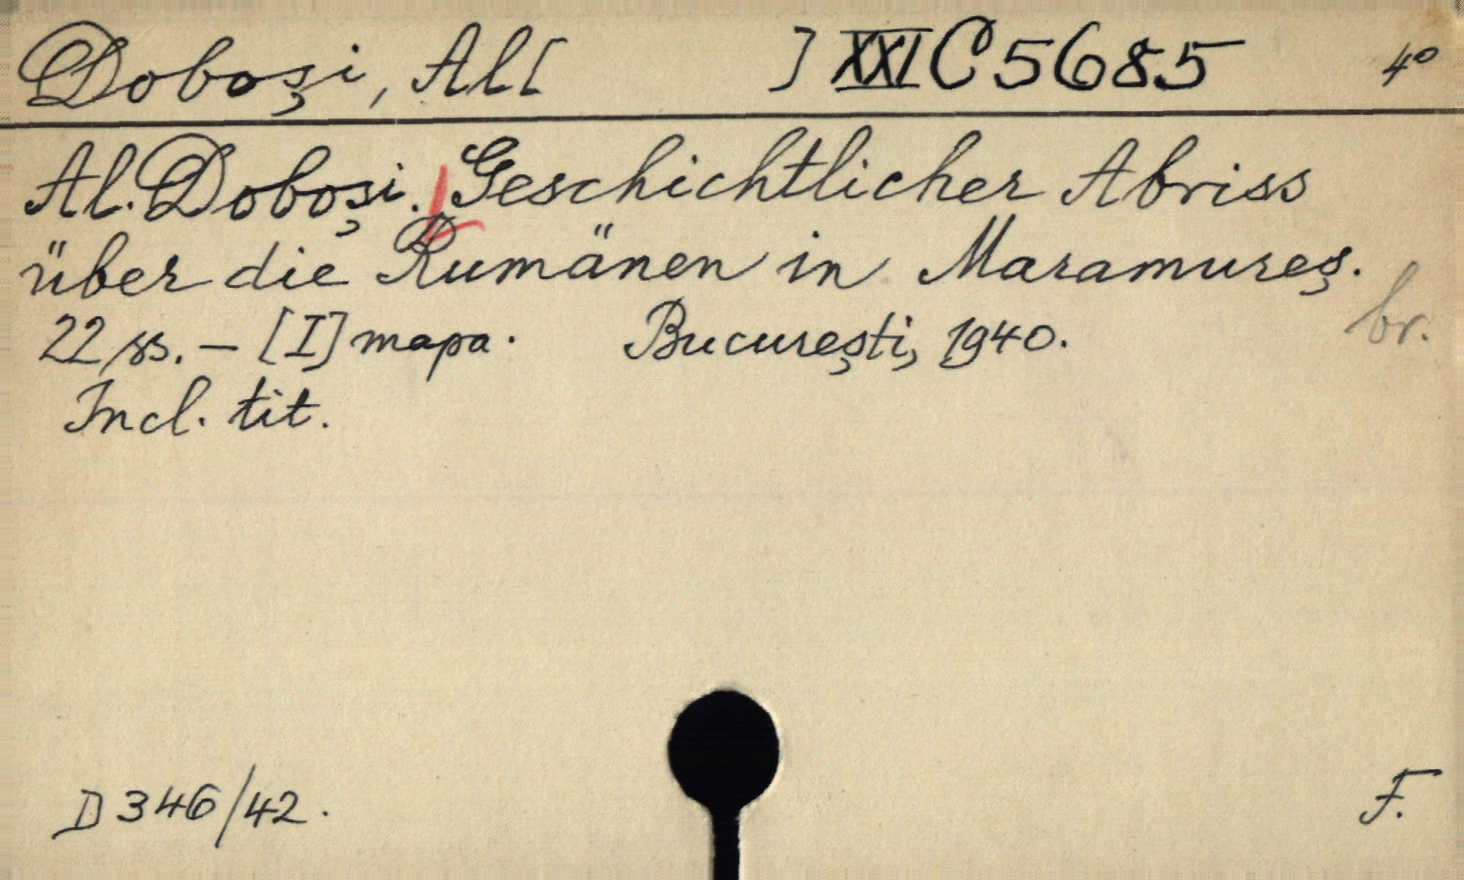 Doboşi, Al[ ] XXI C 5685 4°
Al. Doboşi. Geschichtlicher Abriss
über die Rumänen in Maramureş.
22 ss. – [I] mapa. Bucureşti, 1940.
br.
Incl. tit.
D 346/42. F.